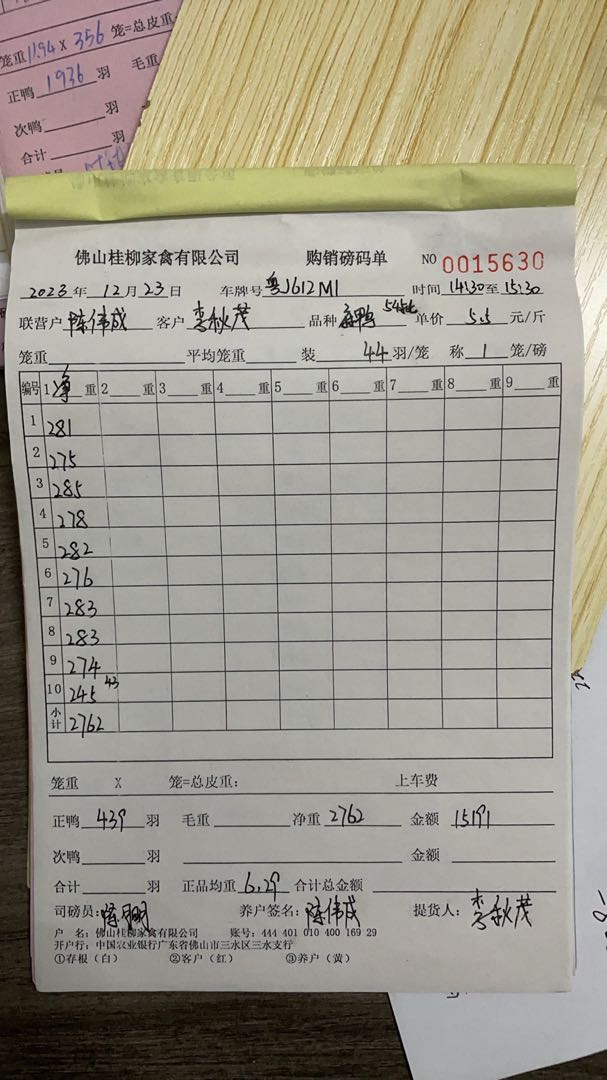 笼重 11.94 X 356 笼=总皮重
正鸭 1936 羽 毛重
次鸭 羽
合计 羽
佛山桂柳家禽有限公司 购销磅码单 NO 0015630
2023 年 12 月 23 日 车牌号 粤J612M1 时间 14:30至15:30
联营户 陈伟成 客户 李秋茂 品种 单价 5.5 元/斤
笼重 平均笼重 装 44 羽/笼 称 1 笼/磅
编号 1 净 重 2 重 3 重 4 重 5 重 6 重 7 重 8 重 9 重
1 281
2 275
3 285
4 278
5 282
6 276
7 283
8 283
9 274
10 245 43
小计 2762
笼重 X 笼=总皮重: 上车费
正鸭 439 羽 毛重 净重 2762 金额 15191
次鸭 羽 金额
合计 羽 正品均重 6.29 合计总金额
司磅员: 养户签名: 陈伟成 提货人: 李秋茂
户 名: 佛山桂柳家禽有限公司 账号: 444 401 010 400 169 29
开户行: 中国农业银行广东省佛山市三水区三水支行
①存根（白） ②客户（红） ③养户（黄）